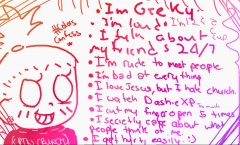 #kdas
Genless
• I'm Gre/ky.
• I'm loud.
• I talk about
my friends 24/7
• I'm rude to most people
• I'm bad at everything
• I love Jesus, but I hate church.
• I watch DashieXP
• I cut my finger open 5 times
• I secretly care about what
people think of me.
• I get hurt easily. :)
CRUNCH